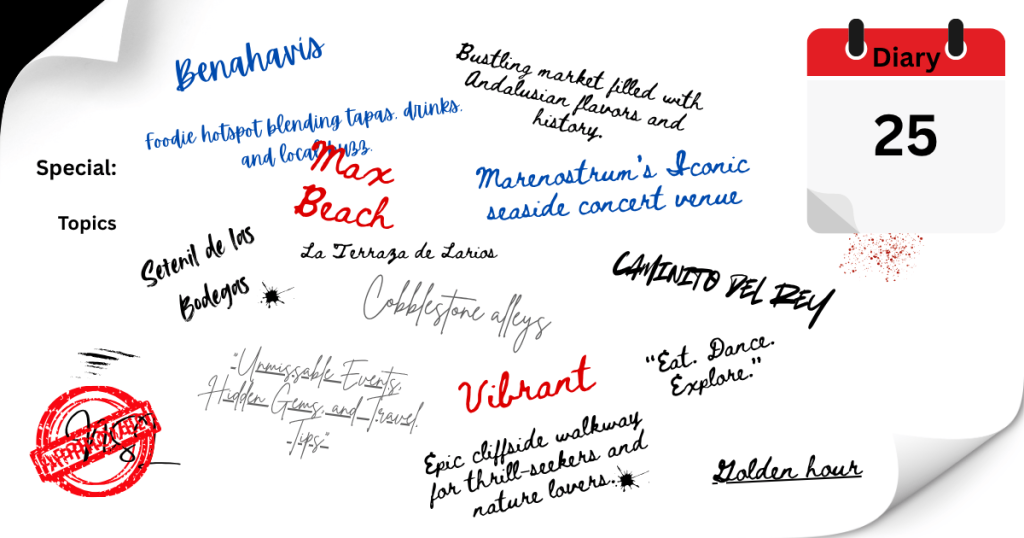 Benahavis
Bustling market filled with
Andalusian flavors and
history.
Diary
25
Foodie hotspot blending tapas, drinks,
and local buzz.
Special:
Topics
Max
Beach
Marenostrum's Iconic
seaside concert venue
Setenil de las
Bodegas
La Terraza de Larios
CAMINITO DEL REY
Cobblestone alleys
"Unmissable Events,
Hidden Gems, and Travel
Tips"
Vibrant
"Eat. Dance.
Explore."
Epic cliffside walkway
for thrill-seekers and
nature lovers.
Golden hour
APPROVED